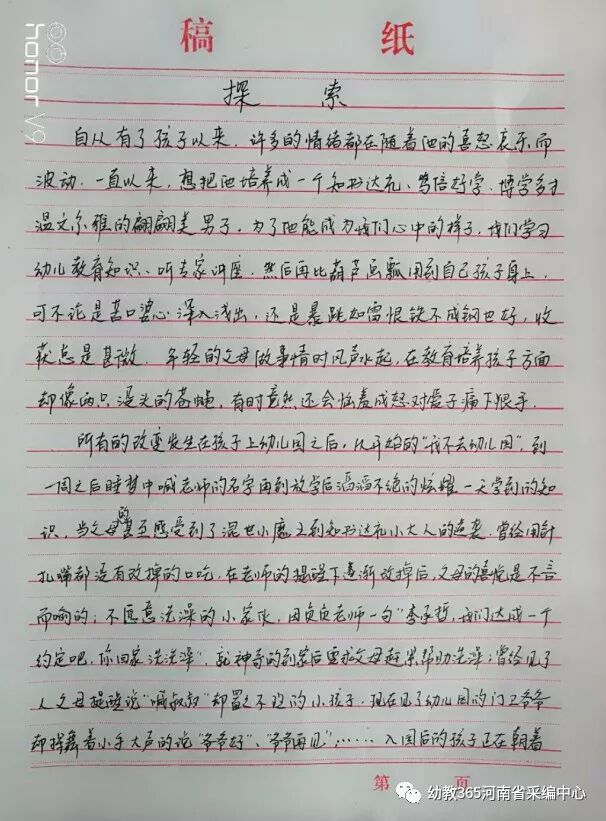 honor V9
稿 纸
探 索
自从有了孩子以来,许多的情绪都在随着他的喜怒哀乐而
波动.一直以来,想把他培养成一个知书达礼、笃信好学、博学多才
温文尔雅的翩翩是男子.为了他能成为我们心中的样子,我们学习
幼儿教育知识、听专家讲座,然后再比葫芦画瓢用到自己孩子身上,
可不论是苦口婆心深入浅出,还是暴跳如雷恨铁不成钢也好,收
获总是甚微.年轻的父母做事情时风声水起,在教育培养孩子方面
却像两只没头的苍蝇,有时竟然还会恼羞成怒对爱子痛下狠手.
所有的改变发生在孩子上幼儿园之后,从开始的“我不去幼儿园”,到
一周之后睡梦中喊老师的名字再到放学后滔滔不绝的炫耀一天学到的知
识,当父母的甚至感受到了混世小魔王到知书达礼小大人的逆袭.曾经用针
扎嘴都没有改掉的口吃,在老师的提醒下逐渐改掉后,父母的喜悦是不言
而喻的;不愿意洗澡的小家伙,因负负老师一句“李承哲,我们达成一个
约定吧,你回家洗洗澡”,就神奇的到家后要求父母赶紧帮助洗澡;曾经见了
人父母提醒说“喊叔叔”却置之不理的小孩子,现在见了幼儿园的门卫爷爷
却挥舞着小手大声的说“爷爷好”、“爷爷再见”;……入园后的孩子正在朝着
第 页
幼教365河南省采编中心